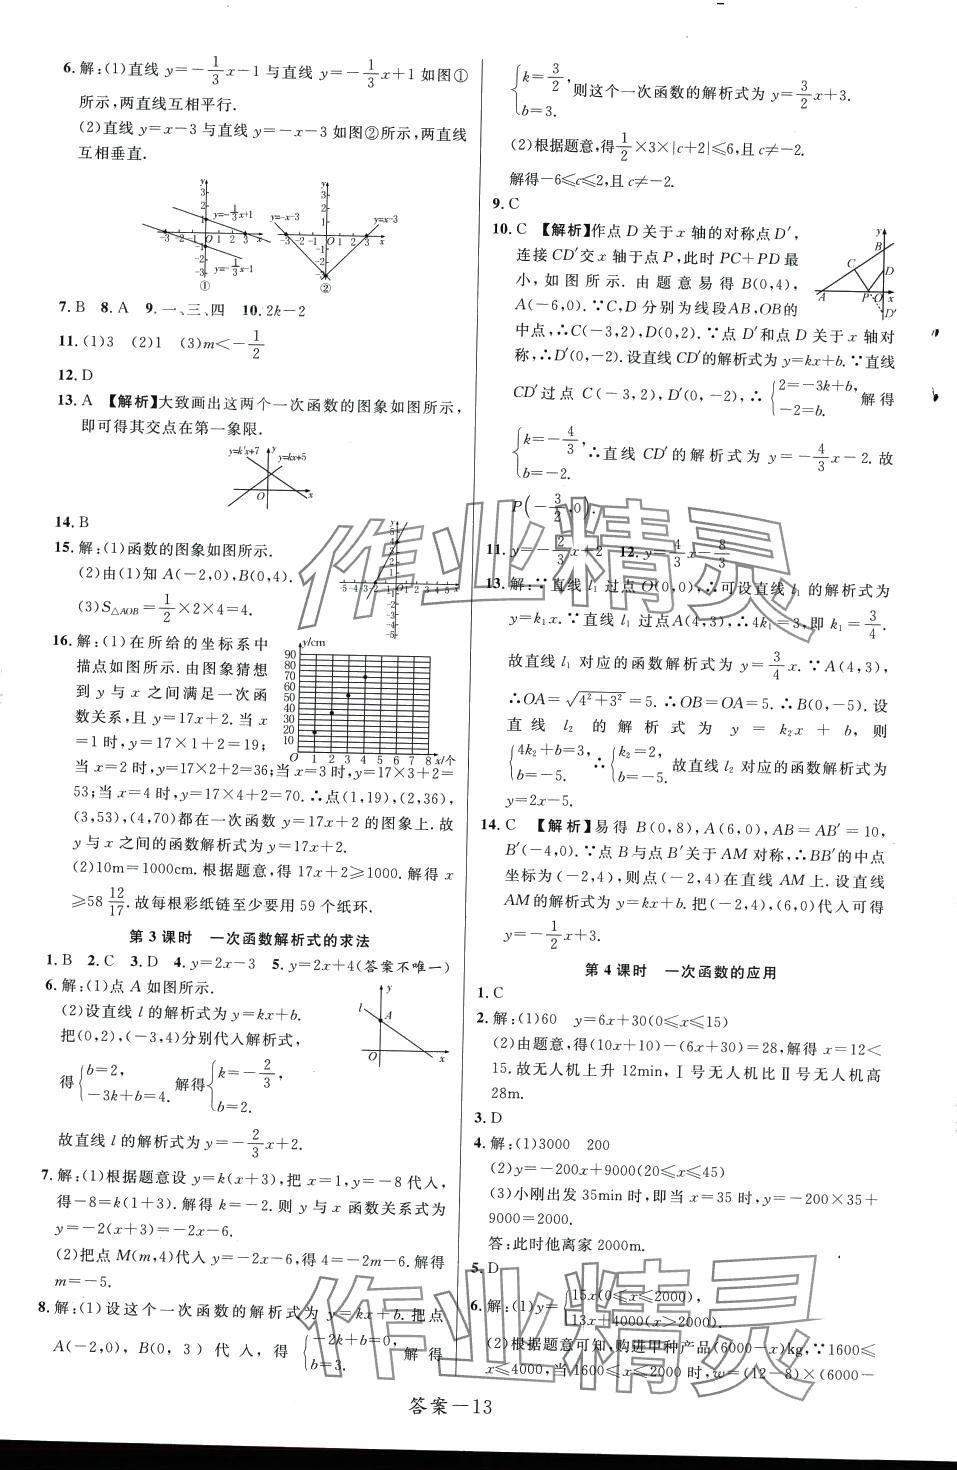 6. 解:(1)直线 y=-1/3x-1 与直线 y=-1/3x+1 如图①
所示,两直线互相平行.
(2)直线 y=x-3 与直线 y=-x-3 如图②所示,两直线
互相垂直.
y=-1/3x+1
y=-1/3x-1
①
y=-x-3
y=x-3
②
7. B 8. A 9. 一、三、四 10. 2k-2
11. (1)3 (2)1 (3)m<-1/2
12. D
13. A 【解析】大致画出这两个一次函数的图象如图所示,
即可得其交点在第一象限.
y=k'x+7 y y=kx+5
O x
14. B
15. 解:(1)函数的图象如图所示.
(2)由(1)知 A(-2,0),B(0,4).
(3)S△AOB=1/2×2×4=4.
16. 解:(1)在所给的坐标系中
描点如图所示. 由图象猜想
到 y 与 x 之间满足一次函
数关系,且 y=17x+2. 当 x
=1时,y=17×1+2=19;
y/cm
90
80
70
60
50
40
30
20
10
O 1 2 3 4 5 6 7 8 x/个
当 x=2 时,y=17×2+2=36;当 x=3 时,y=17×3+2=
53;当 x=4 时,y=17×4+2=70. ∴点(1,19),(2,36),
(3,53),(4,70)都在一次函数 y=17x+2 的图象上. 故
y 与 x 之间的函数解析式为 y=17x+2.
(2)10m=1000cm. 根据题意,得 17x+2≥1000. 解得 x
≥58 12/17. 故每根彩纸链至少要用 59 个纸环.
第 3 课时 一次函数解析式的求法
1. B 2. C 3. D 4. y=2x-3 5. y=2x+4(答案不唯一)
6. 解:(1)点 A 如图所示.
(2)设直线 l 的解析式为 y=kx+b.
把(0,2),(-3,4)分别代入解析式,
得{b=2, -3k+b=4. 解得{k=-2/3, b=2.
l y A O x
故直线 l 的解析式为 y=-2/3x+2.
7. 解:(1)根据题意设 y=k(x+3),把 x=1,y=-8 代入,
得-8=k(1+3). 解得 k=-2. 则 y 与 x 函数关系式为
y=-2(x+3)=-2x-6.
(2)把点 M(m,4)代入 y=-2x-6,得 4=-2m-6. 解得
m=-5.
8. 解:(1)设这个一次函数的解析式为 y=kx+b. 把点
A(-2,0),B(0,3)代入,得{-2k+b=0, b=3. 解得
{k=3/2, b=3. 则这个一次函数的解析式为 y=3/2x+3.
(2)根据题意,得1/2×3×|c+2|≤6,且 c≠-2.
解得-6≤c≤2,且 c≠-2.
9. C
10. C 【解析】作点 D 关于 x 轴的对称点 D′,
连接 CD′交 x 轴于点 P,此时 PC+PD 最
小,如图所示. 由题意易得 B(0,4),
A(-6,0). ∵C,D 分别为线段 AB,OB的
中点,∴C(-3,2),D(0,2). ∵点 D′和点 D 关于 x 轴对
称,∴D′(0,-2). 设直线 CD′的解析式为 y=kx+b. ∵直线
CD′过点 C(-3,2),D′(0,-2),∴{2=-3k+b, -2=b. 解得
{k=-4/3, b=-2. ∴直线 CD′的解析式为 y=-4/3x-2. 故
P(-3/2,0).
y B C D A P O x D′
11. y=-2/3x+2 12. y=4/3x-8/3
13. 解:∵直线 l₁ 过点 O(0,0),∴可设直线 l₁ 的解析式为
y=k₁x. ∵直线 l₁ 过点A(4,3),∴4k₁=3,即 k₁=3/4.
故直线 l₁ 对应的函数解析式为 y=3/4x. ∵A(4,3),
∴OA=√(4²+3²)=5. ∴OB=OA=5. ∴B(0,-5). 设
直线 l₂ 的解析式为 y=k₂x+b,则
{4k₂+b=3, b=-5. ∴{k₂=2, b=-5. 故直线 l₂ 对应的函数解析式为
y=2x-5.
14. C 【解析】易得 B(0,8),A(6,0),AB=AB′=10,
B′(-4,0). ∵点 B与点 B′关于 AM 对称,∴BB′的中点
坐标为(-2,4),则点(-2,4)在直线 AM 上. 设直线
AM的解析式为 y=kx+b. 把(-2,4),(6,0)代入可得
y=-1/2x+3.
第 4 课时 一次函数的应用
1. C
2. 解:(1)60 y=6x+30(0≤x≤15)
(2)由题意,得(10x+10)-(6x+30)=28,解得 x=12<
15. 故无人机上升 12min,Ⅰ号无人机比Ⅱ号无人机高
28m.
3. D
4. 解:(1)3000 200
(2)y=-200x+9000(20≤x≤45)
(3)小刚出发 35min 时,即当 x=35 时,y=-200×35+
9000=2000.
答:此时他离家 2000m.
5. D
6. 解:(1)y={15x(0≤x≤2000), 13x+4000(x>2000).
(2)根据题意可知,购进甲种产品(6000-x)kg,∵1600≤
x≤4000,当 1600≤x≤2000 时,w=(12-8)×(6000-
作业精灵
作业精灵
答案－13